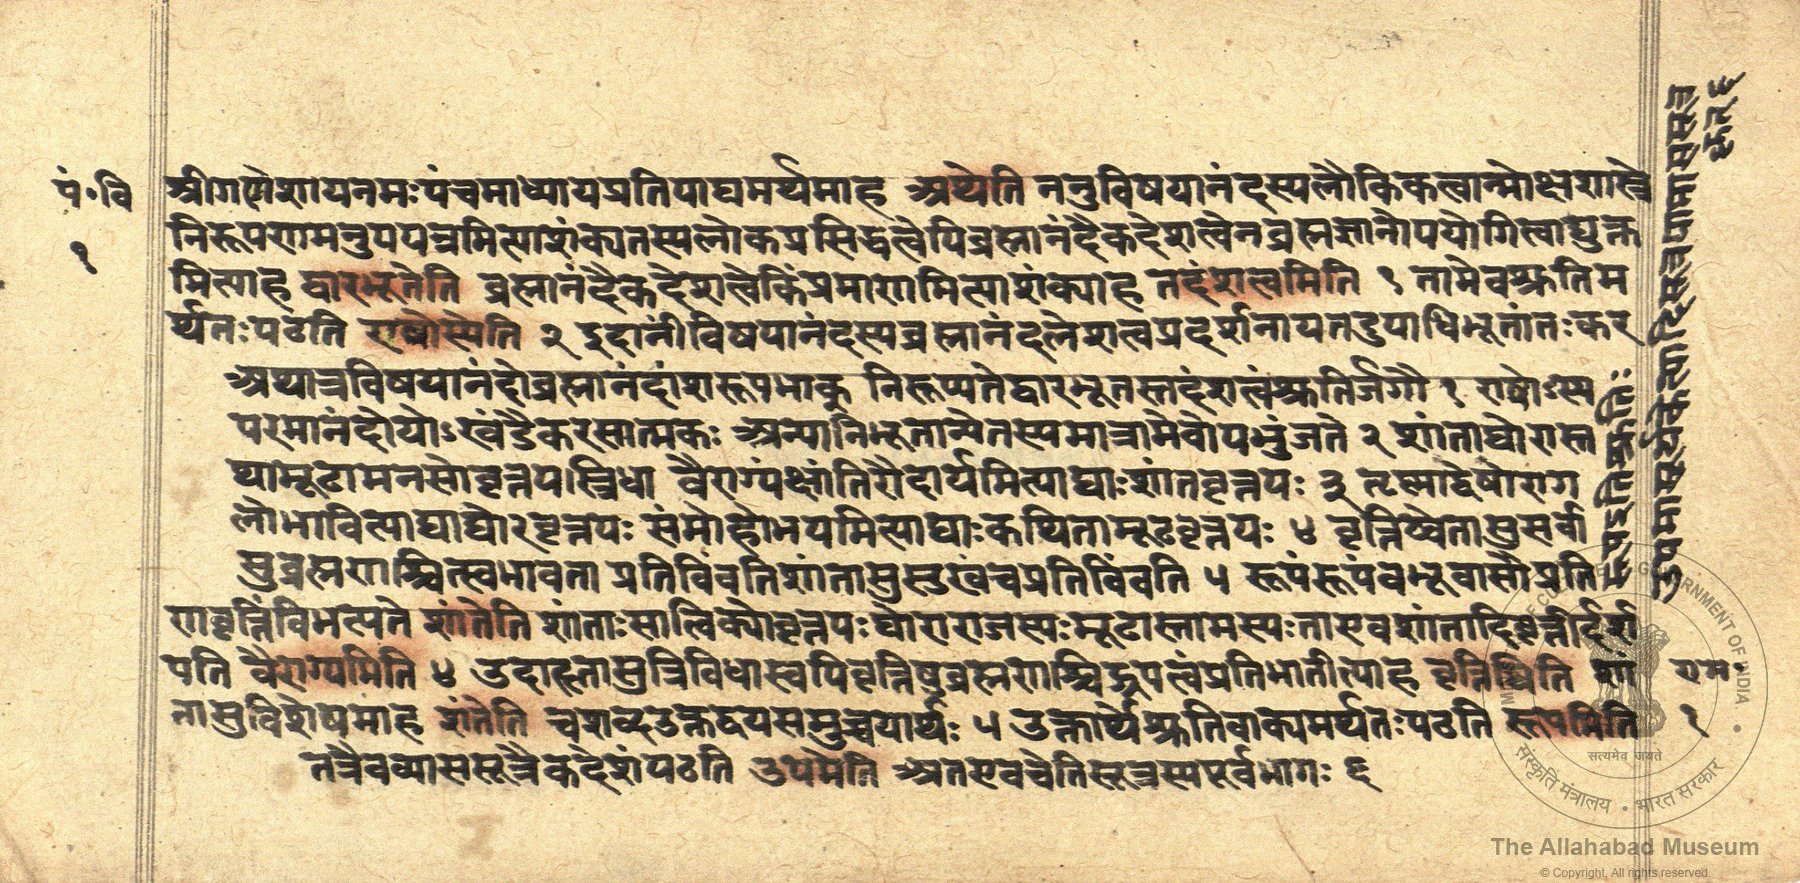 पं॰वि
१
श्रीगणेशायनमःपंचमाध्यायप्रतिपाद्यमर्थमाह अथेति ननुविषयानंदस्यलौकिकत्वान्मोक्षशास्त्रे
निरूपणमनुपपन्नमित्याशंक्यतस्यलोकप्रसिद्धत्वेपिब्रह्मानंदैकदेशत्वेनब्रह्मज्ञानोपयोगित्वाद्युक्त
मित्याह द्वारभूतेति ब्रह्मानंदैकदेशत्वेकिंप्रमाणमित्याशंक्याह तदंशत्वमिति १ तामेवश्रुतिम
र्थतःपठति एषोस्येति २ इदानींविषयानंदस्यब्रह्मानंदलेशत्वप्रदर्शनायतदुपाधिभूतांतःकर
अथात्रविषयानंदोब्रह्मानंदांशरूपभाक् निरूप्यतेद्वारभूतस्तदंशत्वंश्रुतिर्जगौ १ एषोऽस्य
परमानंदोयोऽखंडैकरसात्मकः अन्यानिभूतान्येतस्यमात्रामेवोपभुंजते २ शांताघोरास्त
थामूढामनसोवृत्तयस्त्रिधा वैराग्यंक्षांतिरौदार्यमित्याद्याःशांतवृत्तयः ३ तृष्णाद्वेषोराग
लोभावित्याद्याघोरवृत्तयः संमोहोभयमित्याद्याःकथितामूढवृत्तयः ४ वृत्तिष्वेतासुसर्वा
सुब्रह्मणश्चित्स्वभावता प्रतिविंवतिशांतासुसुखंचप्रतिविंवति ५ रूपंरूपंवभूवासौप्रति
णवृत्तिंविभज्यते शांतेति शांताःसात्विक्योवृत्तयःघोराराजस्यःमूढास्तामस्यःताएवशांतादिवृत्तीर्दर्श
यति वैराग्यमिति ४ उदाहृतासुत्रिविधास्वपिवृत्तिषुब्रह्मणश्चिद्रूपत्वंप्रतिभातीत्याह वृत्तिष्विति शां
तासुविशेषमाह शांतेति चशब्दउक्तद्वयसमुच्चयार्थः ५ उक्तार्थेश्रुतिवाक्यमर्थतःपठति रूपमिति
तत्रैवव्याससूत्रैकदेशंपठति उपमेति अतएवचेतिसूत्रस्यपूर्वभागः ६
राम॰
१
रूपइतिश्रुतिः
उपमासूर्यकेत्यादिसूत्रयामाससूत्र
कृत् ६
सत्यमेव जयते
MINISTRY OF CULTURE • GOVERNMENT OF INDIA
संस्कृति मंत्रालय • भारत सरकार
The Allahabad Museum
© Copyright, All rights reserved.